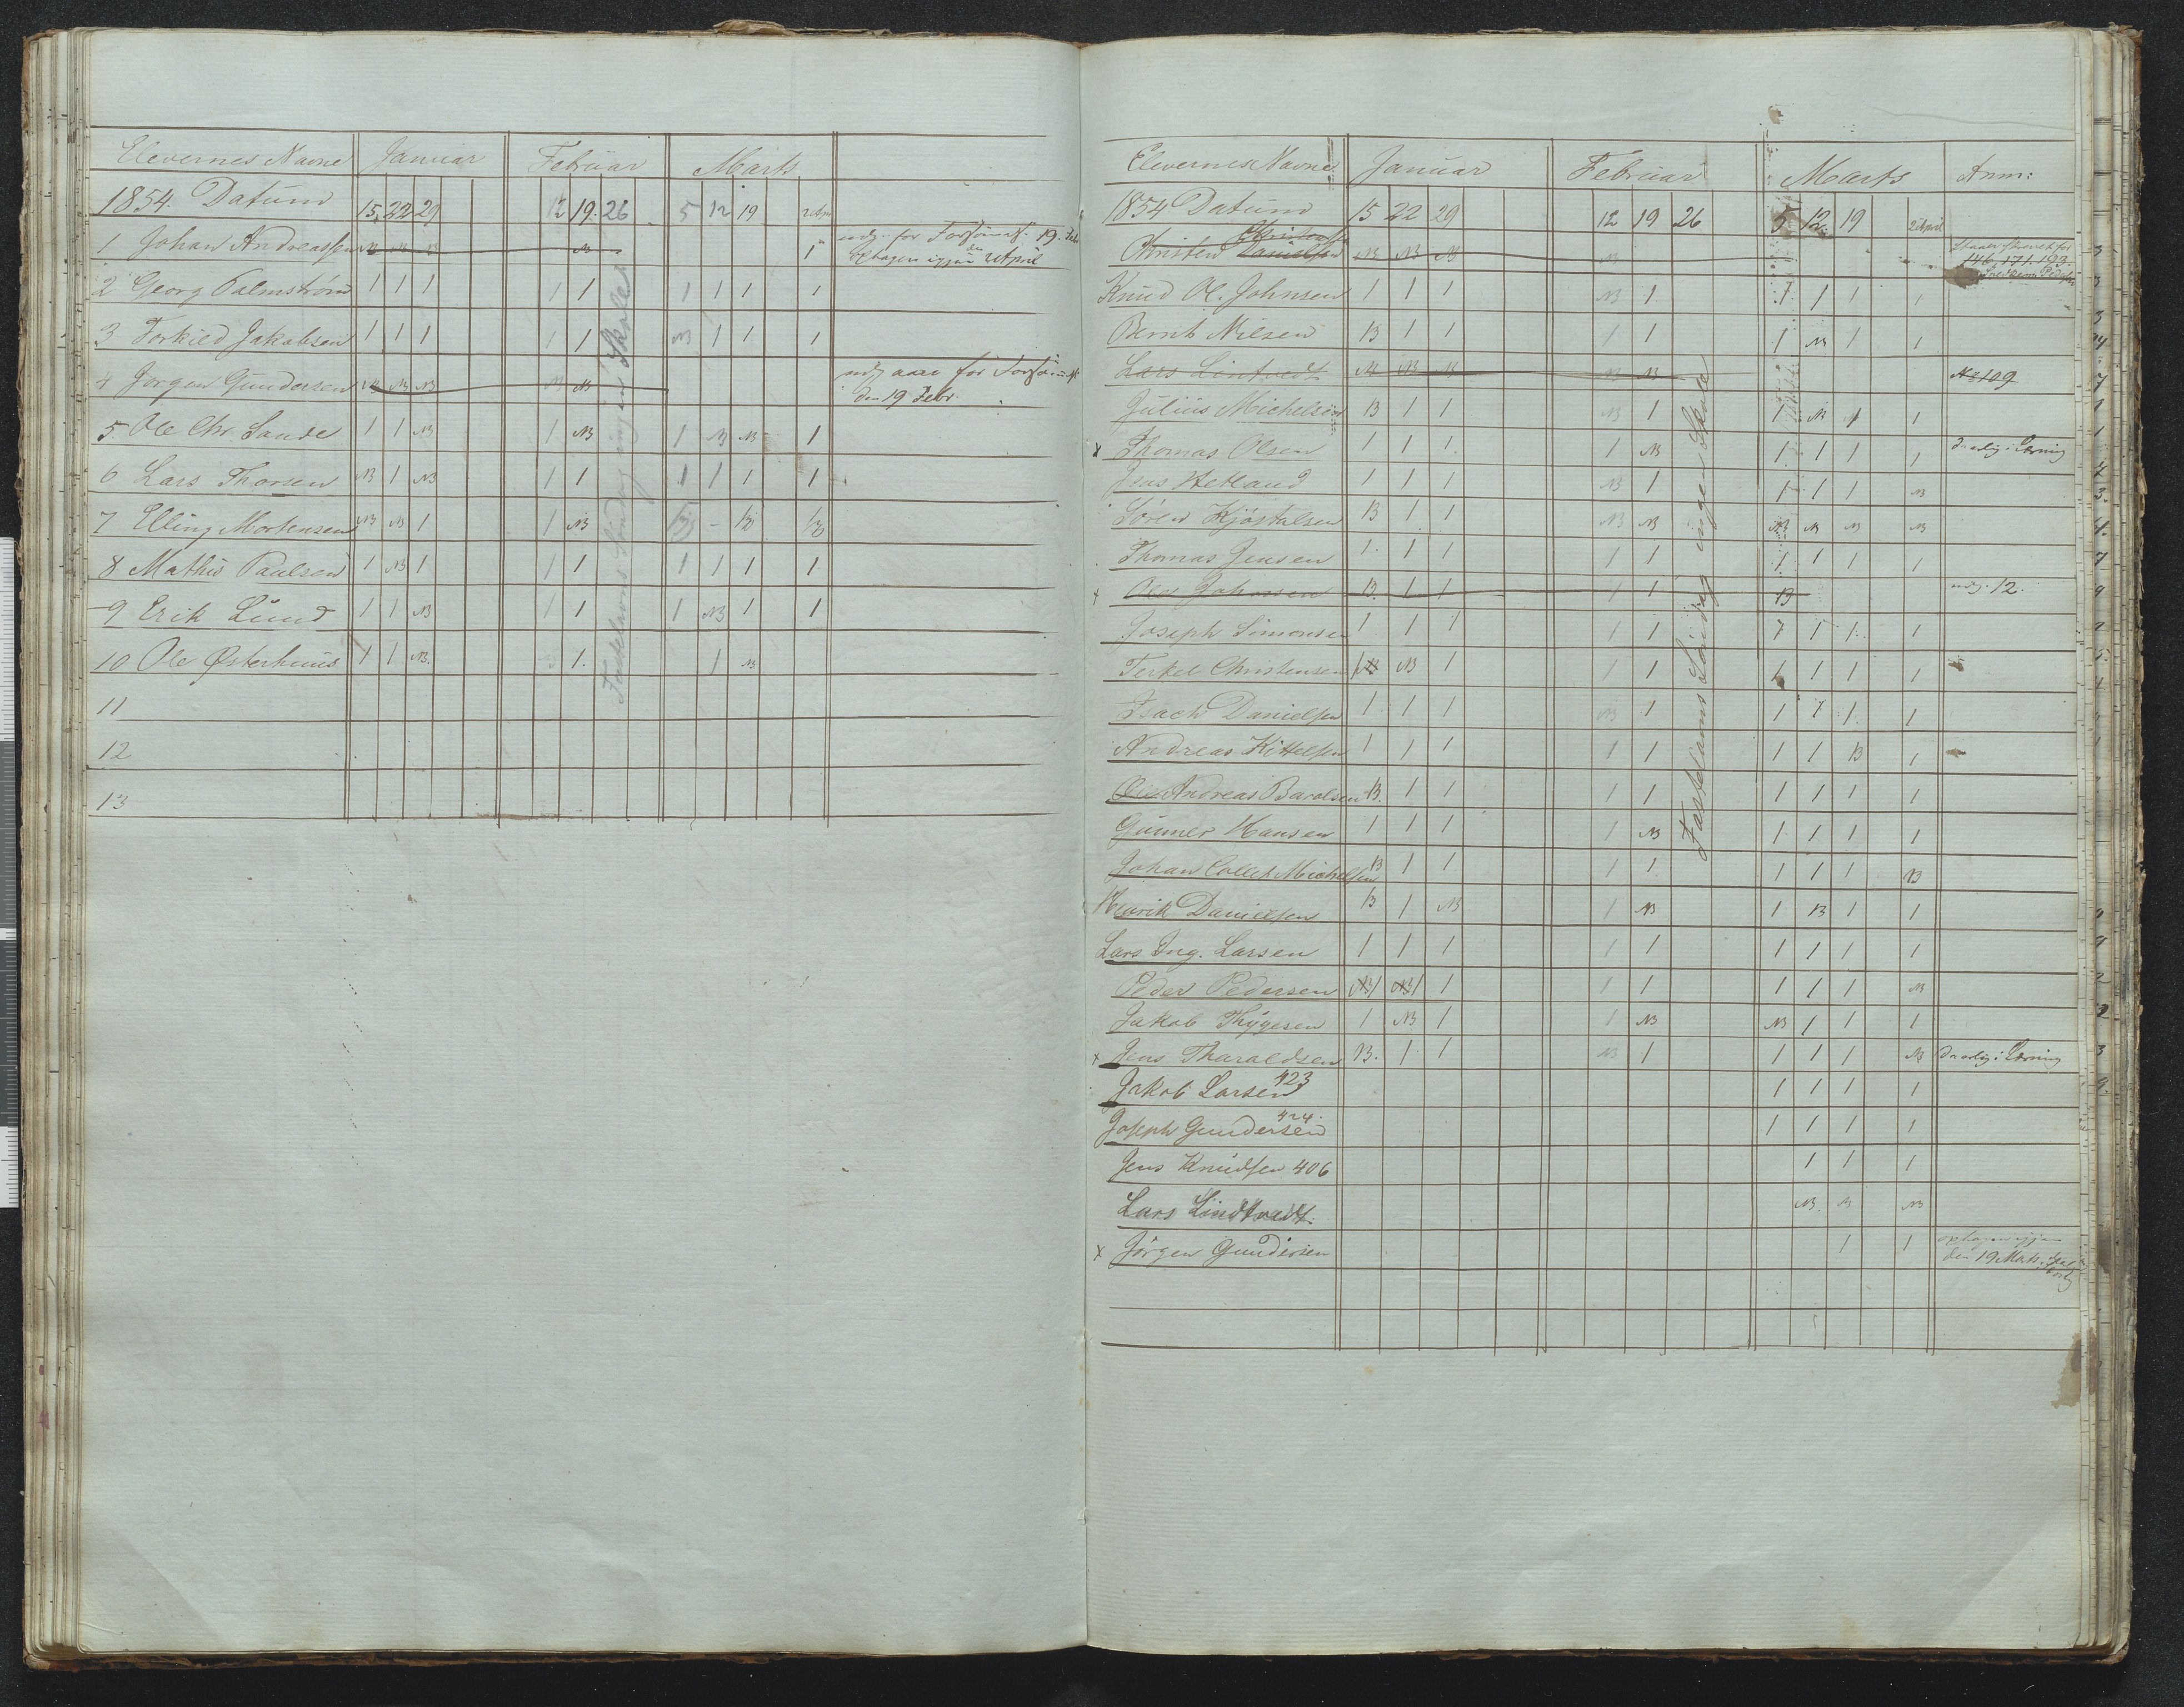 Elevernes Navne Januar Februar Marts
1854. Datum 15. 22 29 12 19. 26 5 12 19 2 Apr
1 Johan Andreassen NB NB NB NB 1 udg. for Forsømels. 19. Feb
den
Optagen igjen 2 April
2 Georg Palmstrøm 1 1 1 1 1 1 1 1 1
3 Torkild Jakobsen 1 1 1 1 1 NB 1 1 1
4 Jørgen Gundersen NB NB NB NB NB den 19 Febr.
5. Ole Chr. Sande 1 1 NB 1 NB 1 NB NB 1
6 Lars Thorsen NB 1 NB 1 1 1 1 1 1
7 Elling Mortensen NB NB 1 1 NB B - B B
8 Mathis Paulsen 1 NB 1 1 1 1 1 1 1
9 Erik Lund 1 1 NB 1 1 1 NB 1 1
10 Ole Østerhuus 1 1 NB. 1. 1 NB
11
12
13
Fastelavns Søndag ingen Skole
Elevernes Navne Januar Februar Marts Anm:
1854 Datum 15 22 29 12 19 26 5 12. 19 2 April
Christens
Christen Danielsen NB NB NB NB 146, 171. 193.
Knud Ol. Johnsen 1 1 1 NB 1. 1 1 1 1
Bernt Nilsen B 1 1 1 1 1 NB 1 1
Lars Lintvedt NB NB NB NB NB No 109
Julius Michelsen B 1 1 NB 1 1 NB 1 1
x Thomas Olsen 1 1 1. 1 NB 1 1 1 1 daarlig i Læsning
Jens Hetland 1 1 1 NB 1 1 1 1 NB
Sören Kjöstalsen B 1 1 NB NB NB NB NB NB
Thomas Jensen 1. 1 1 1 1 1 1 1 1
x Ole Johnsen B. 1 1 1 1 B udg. 12.
Joseph Simonsen 1 1 1 1 1 1 1 1. 1
Terkel Christensen 1 NB NB 1 1 1 1 1 1 1
Isach Danielsen 1 1 1 NB 1 1 1 1. 1
Andreas Kittelsen 1 1 1 1 1 1 1 B 1
Ole Andreas Baralsen B. 1 1 1 1 1 1 1 1
Gunner Hansen 1 1 1 1 NB 1 1 1 1
Johan Collet Michelsen B 1 1 1 1 1 1 1 B
Henrik Danielsen B 1 NB 1 NB 1 B 1 1
Lars Ing. Larsen 1 1 1 1 1 1 1 1 1
Peder Pedersen NB 1 NB 1 1 1 1 1 1 1 NB
Jakob Thygesen 1 NB 1 1 NB NB 1 1 1
x Jens Tharaldsen B. 1 1 NB 1 1 1 1 NB daarlig i Læsning
Jakob Larsen 423 1 1 1 1
Joseph Gundersen 424. 1 1 1 1
Jens Knudsen 406 1 1 1
Lars Lindtvedt. NB. NB NB
x Jörgen Gundersen 1 1 optagen igjen
den 19 Marts.
Fastelavns Søndag ingen Skole